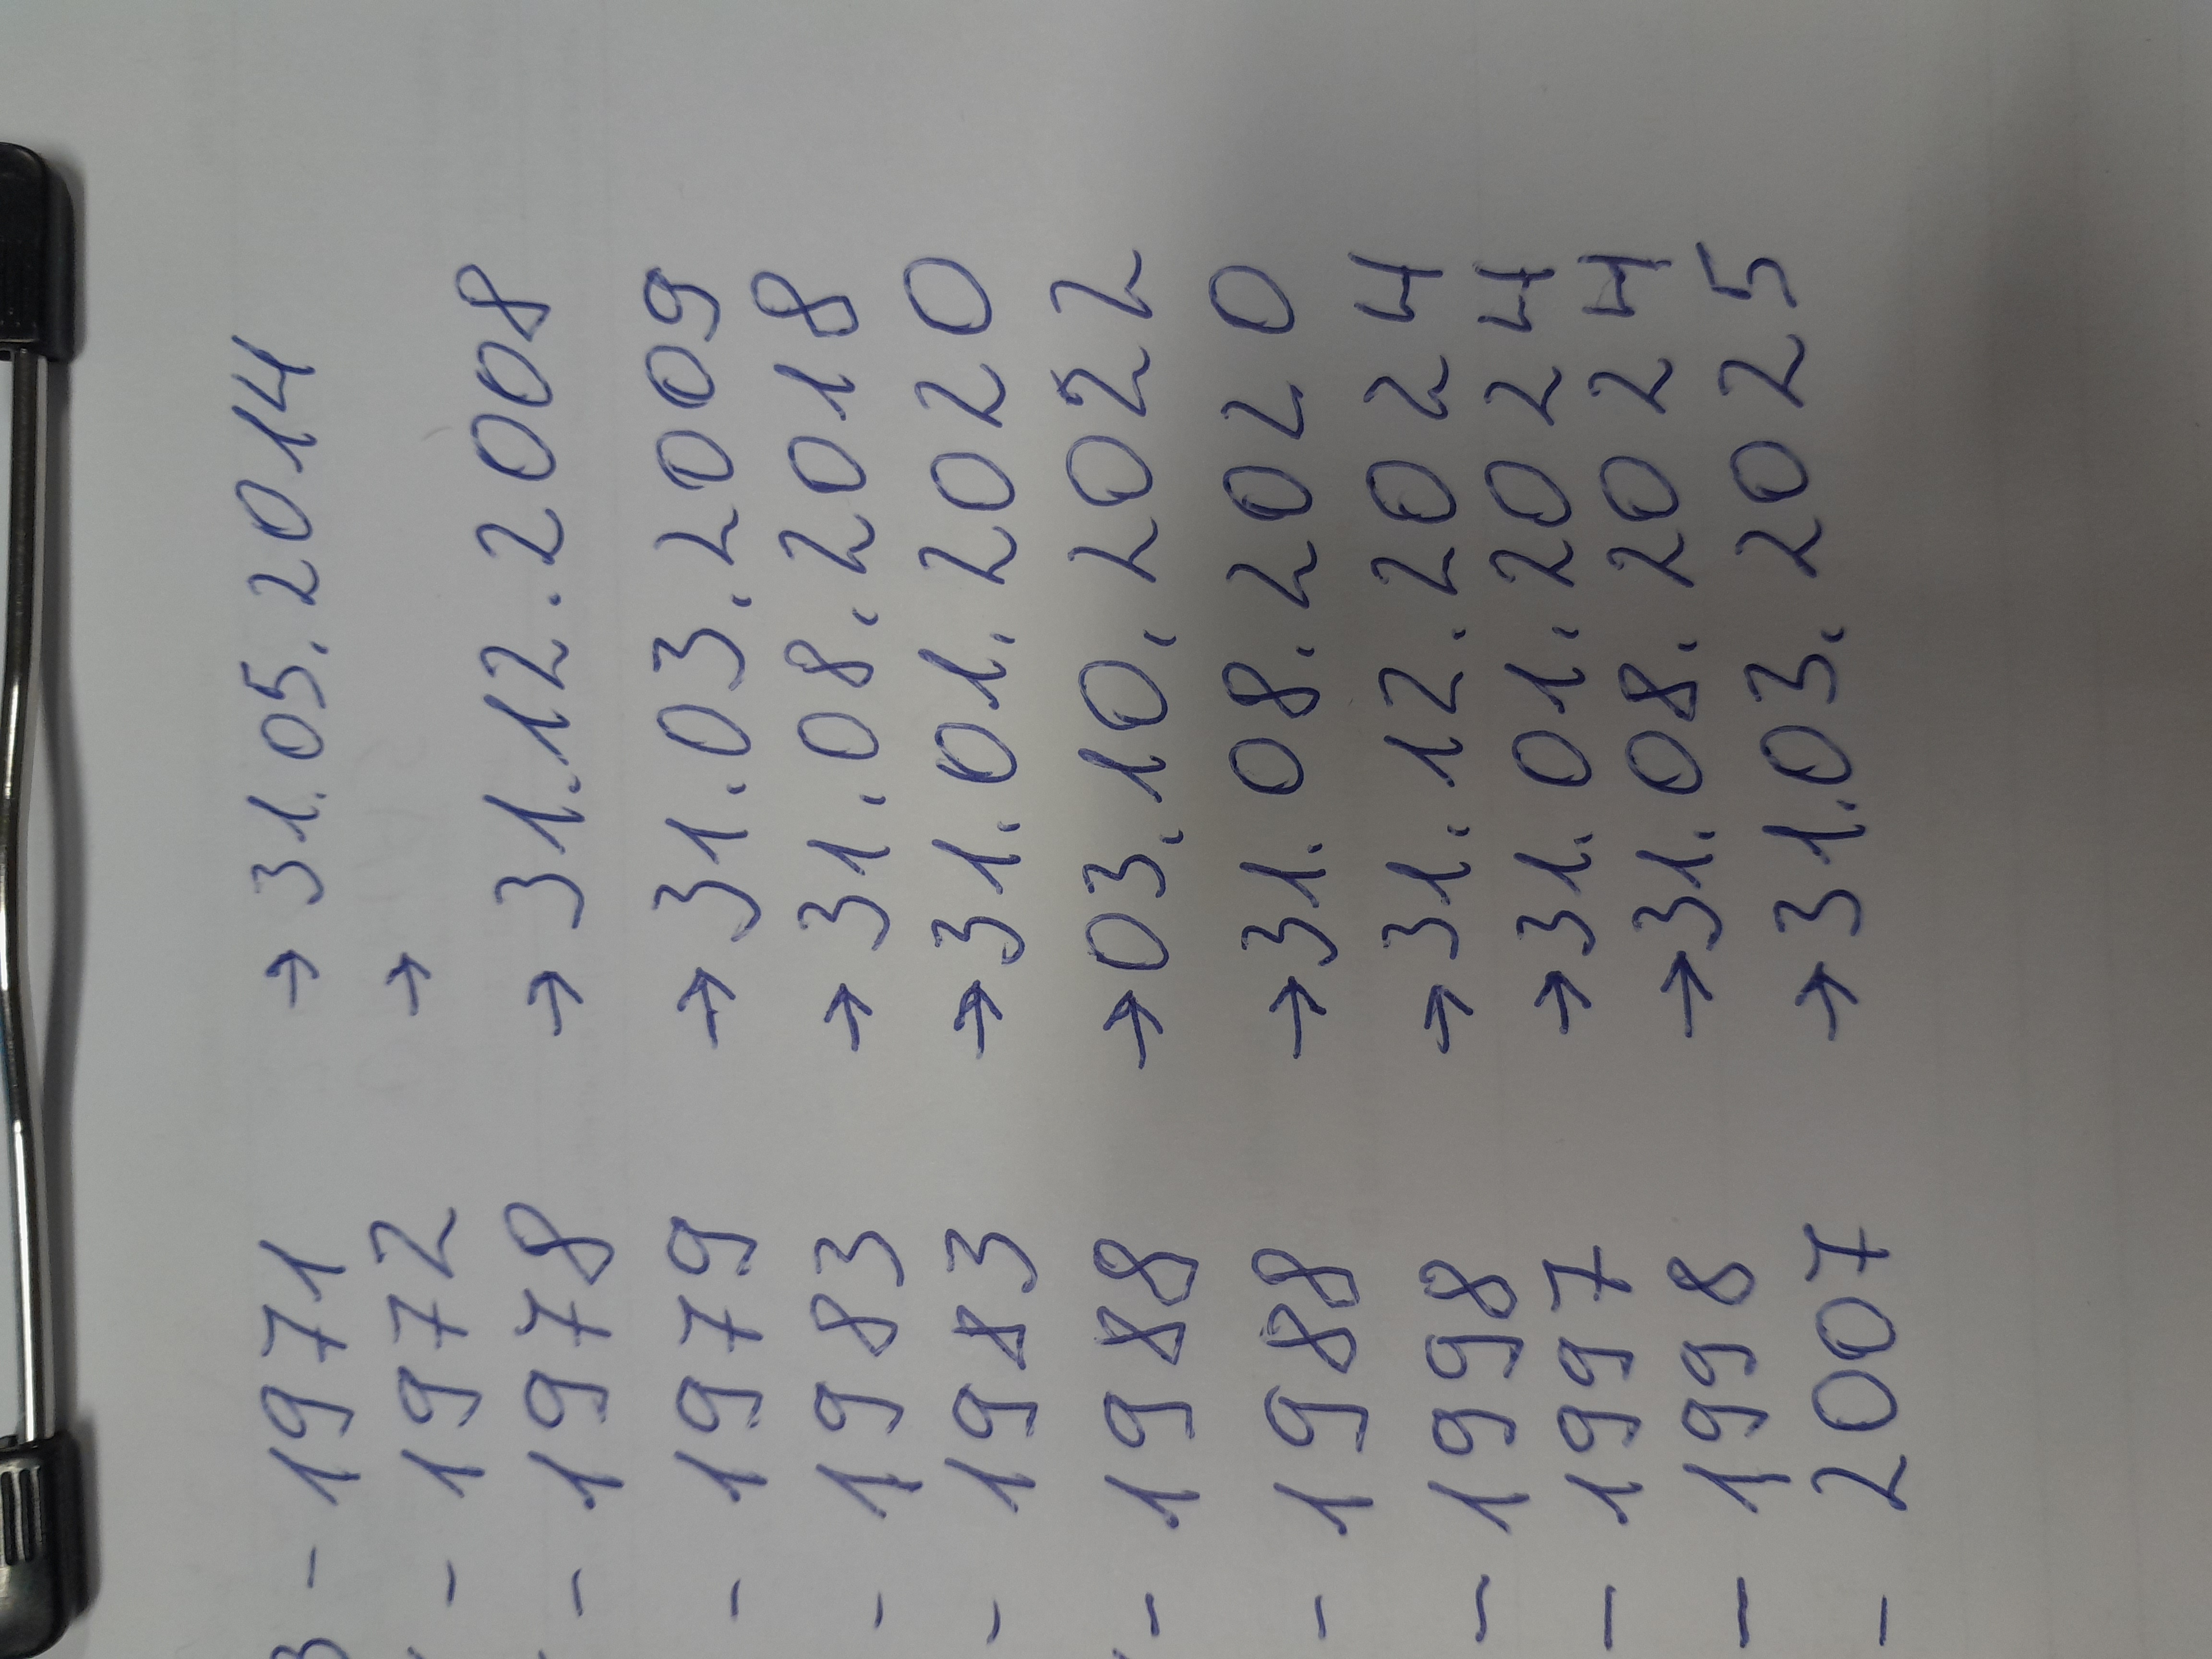 - 1971 → 31.05.2014
- 1972 →
- 1978 → 31.12.2008
- 1979 → 31.03.2009
- 1983 → 31.08.2018
- 1983 → 31.01.2020
- 1988 → 03.10.2022
- 1988 → 31.08.2020
- 1998 → 31.12.2024
- 1997 → 31.01.2024
- 1998 → 31.08.2024
- 2007 → 31.03.2025